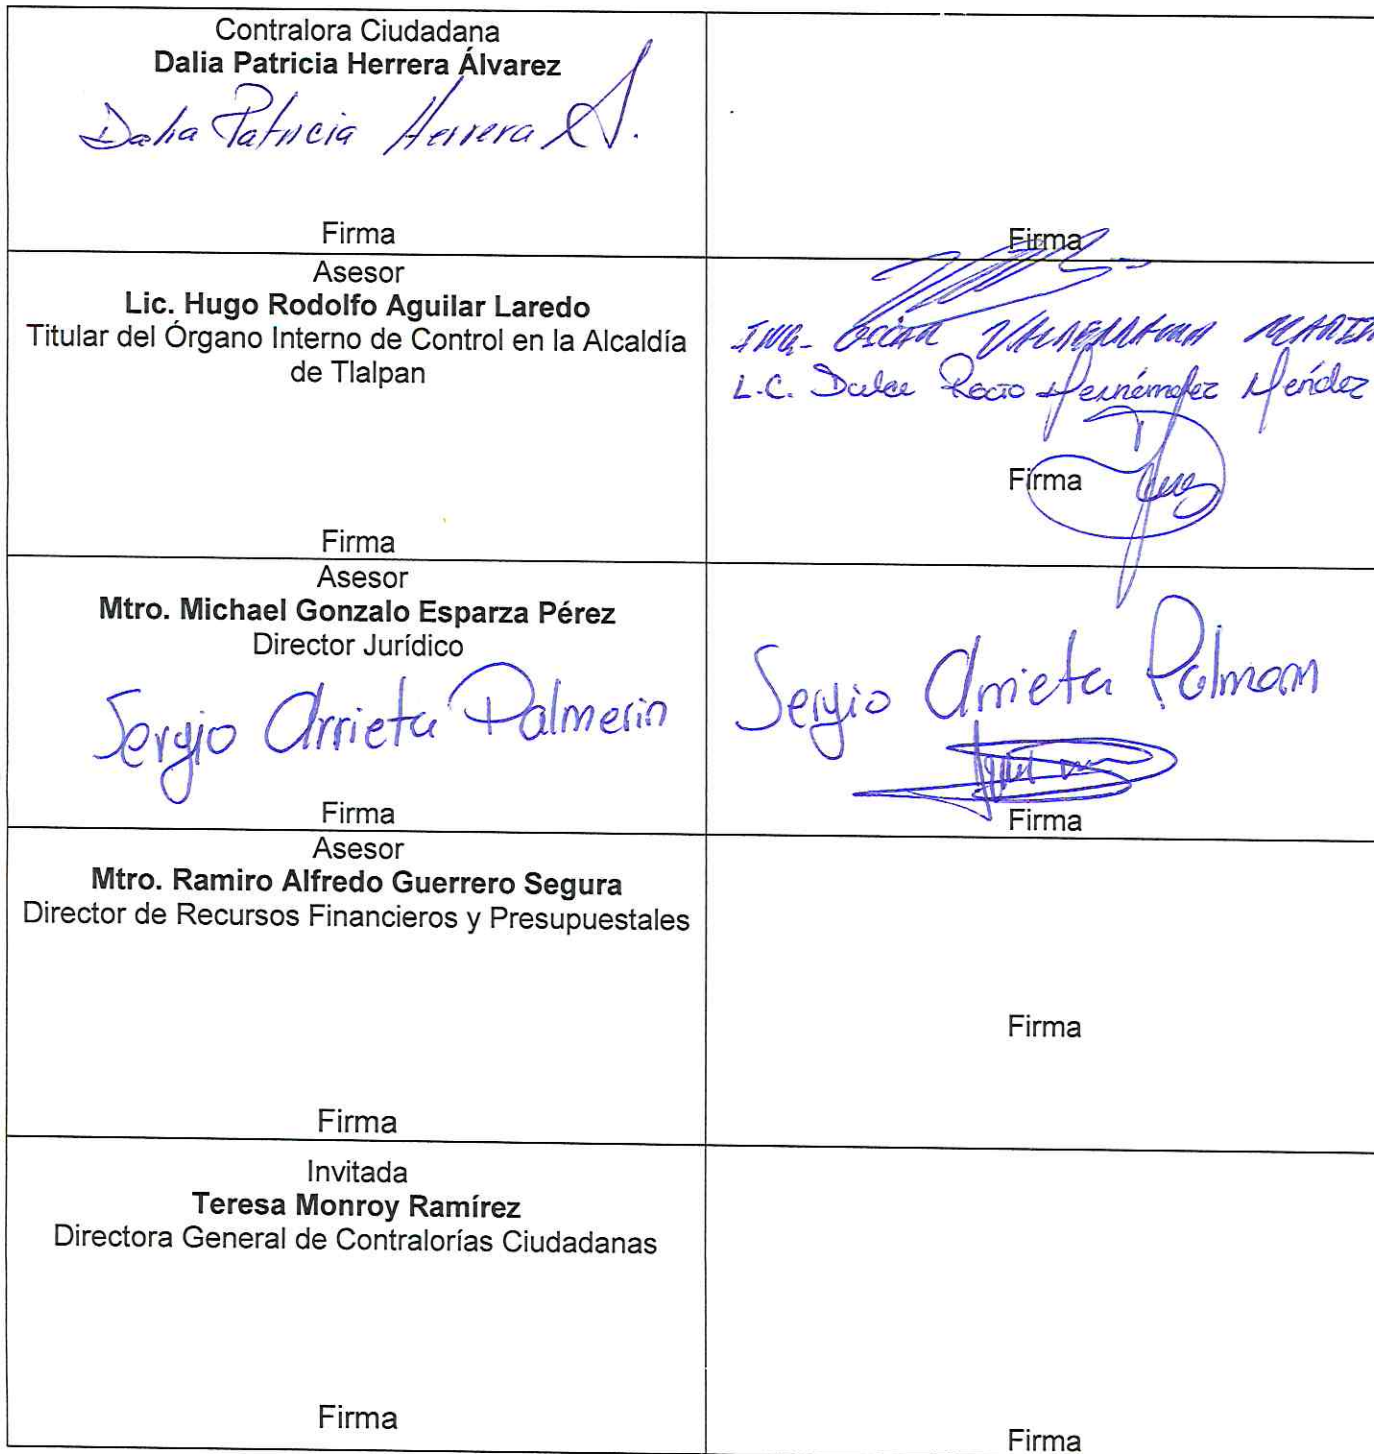 Contralora Ciudadana
Dalia Patricia Herrera Álvarez
Dalia Patricia Herrera A.
Firma
Firma
Asesor
Lic. Hugo Rodolfo Aguilar Laredo
Titular del Órgano Interno de Control en la Alcaldía
de Tlalpan
Firma
ING. Oscar MARTIN
L.C. Dulce Rocio Hernández Méndez
Firma
Asesor
Mtro. Michael Gonzalo Esparza Pérez
Director Jurídico
Sergio Arrieta Palmerin
Firma
Sergio Arrieta Palmerin
Firma
Asesor
Mtro. Ramiro Alfredo Guerrero Segura
Director de Recursos Financieros y Presupuestales
Firma
Firma
Invitada
Teresa Monroy Ramírez
Directora General de Contralorías Ciudadanas
Firma
Firma